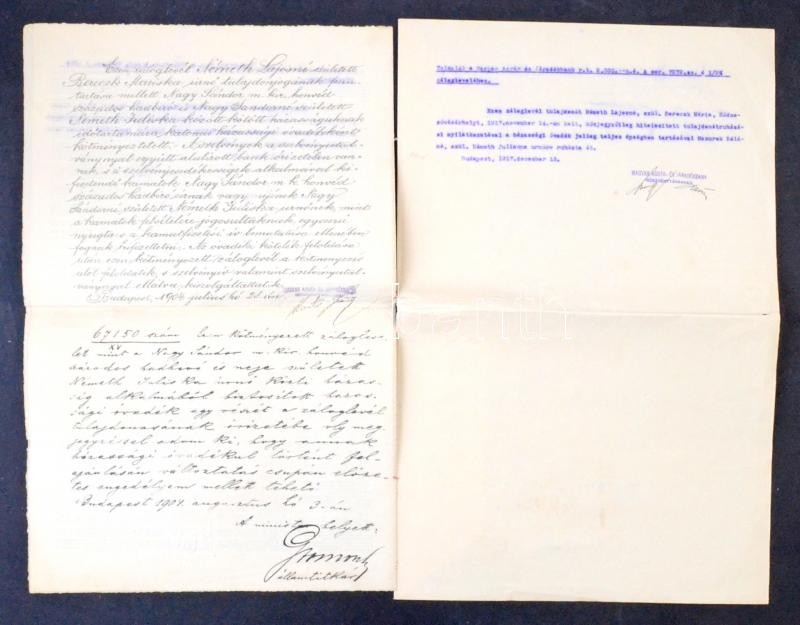 Ezen záloglevél Németh Lajosné született
Berecsk Mariska úrnő tulajdonjogának fenn-
tartása mellett Nagy Sándor m. kir. honvéd
százados hadbíró és Nagy Sándorné született
Németh Juliska között kötött házasságuknak
időtartamára katonai házassági óvadékként
kötményeztetett. A szelvények a szelvényutal-
vánnyal együtt alulírott bank őrizetében van-
nak, s a szelvényesedékességek alkalmával ki-
fizetendő kamatok Nagy Sándor m. k. honvéd
százados hadbíró úrnak vagy nejének Nagy
Sándorné született Németh Juliska úrnőnek mint
a kamatok felvételére jogosultaknak egyszerű
nyugta s a
fognak kifizettetni. Az óvadéki kötelék feloldása
után ezen kötményezett záloglevél a kötményezés
alól feloldatik, s szelvényív valamint szelvényutal-
vánnyal ellátva kiszolgáltattatik.
Budapest, 1904 július hó 28-án
67150 szám Ezen kötményezett záloglev-
XV
let mint a Nagy Sándor m. kir. honvéd
százados hadbíró és neje született
Németh Juliska úrnő közti házas-
ság alkalmából biztosított házas-
sági óvadék egy részét a záloglevél
tulajdonosának őrizetébe oly meg-
jegyzéssel adom ki, hogy annak
házassági óvadékul történt fel-
ajánlásán változtatás csupán előze-
tes engedélyem mellett tehető
Budapest 1904. augusztus hó 3-án
A minister helyett:
Gromon
államtitkár
a Magyar Agrár és Járadékbank r.t. 2.000.-
zálogleveléhez.
Ezen záloglevél tulajdonosát Németh Lajosné, szül. Berecsk Mária,
1917.november 14.-én kelt, közjegyzőileg hitelesített tulajdonátruházá-
si nyilatkozatával a házassági óvadék jelleg teljes épségben tartásával Mazurek
né, szül. Németh Julianna úrnőre ruházta át.
Budapest, 1917.december 18.
MAGYAR AGRÁR- ÉS JÁRADÉKBANK